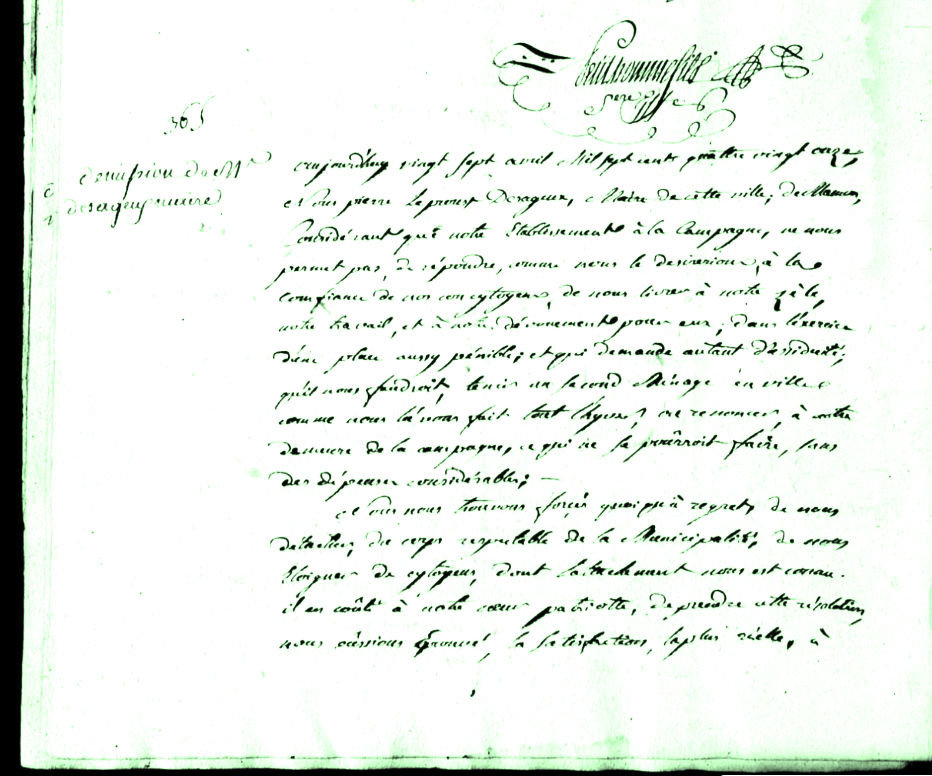 Prudhomme fils
greffier
365
demission de Mr
deraguenuiere
aujourdhuy vingt sept avril Mil sept cents quattre vingt onze,
Nous pierre Leproust Maire de cette ville, de Mamers,
Considérant que notre Etablissement à la Campagne, ne nous
permet pas, de répondre, comme nous le desirerions, à la
confiance de nos concytoyens, de nous livrer à notre zèle,
notre travail, et à notre dévouement pour eux, dans l'exercice
d'une place aussy pénible, et qui demande autant d'assiduité,
qu'il nous faudroit, tenir un second Ménage en ville
comme nous l'avons fait tout l'hyver, ou renoncer, à notre
demeure de la campagne, ce qui ne se pourroit faire, sans
des dépenses considérables; —
Nous nous trouvons forcés quoiqu'à regret, de nous
détacher, du corps respectable de la Municipalité, de nous
Eloigner de cytoyens, dont l'attachement nous est connu.
il en coûte à notre cœur patriotte, de prendre cette résolution,
nous eussions éprouvé, la satisfaction, la plus réelle, à